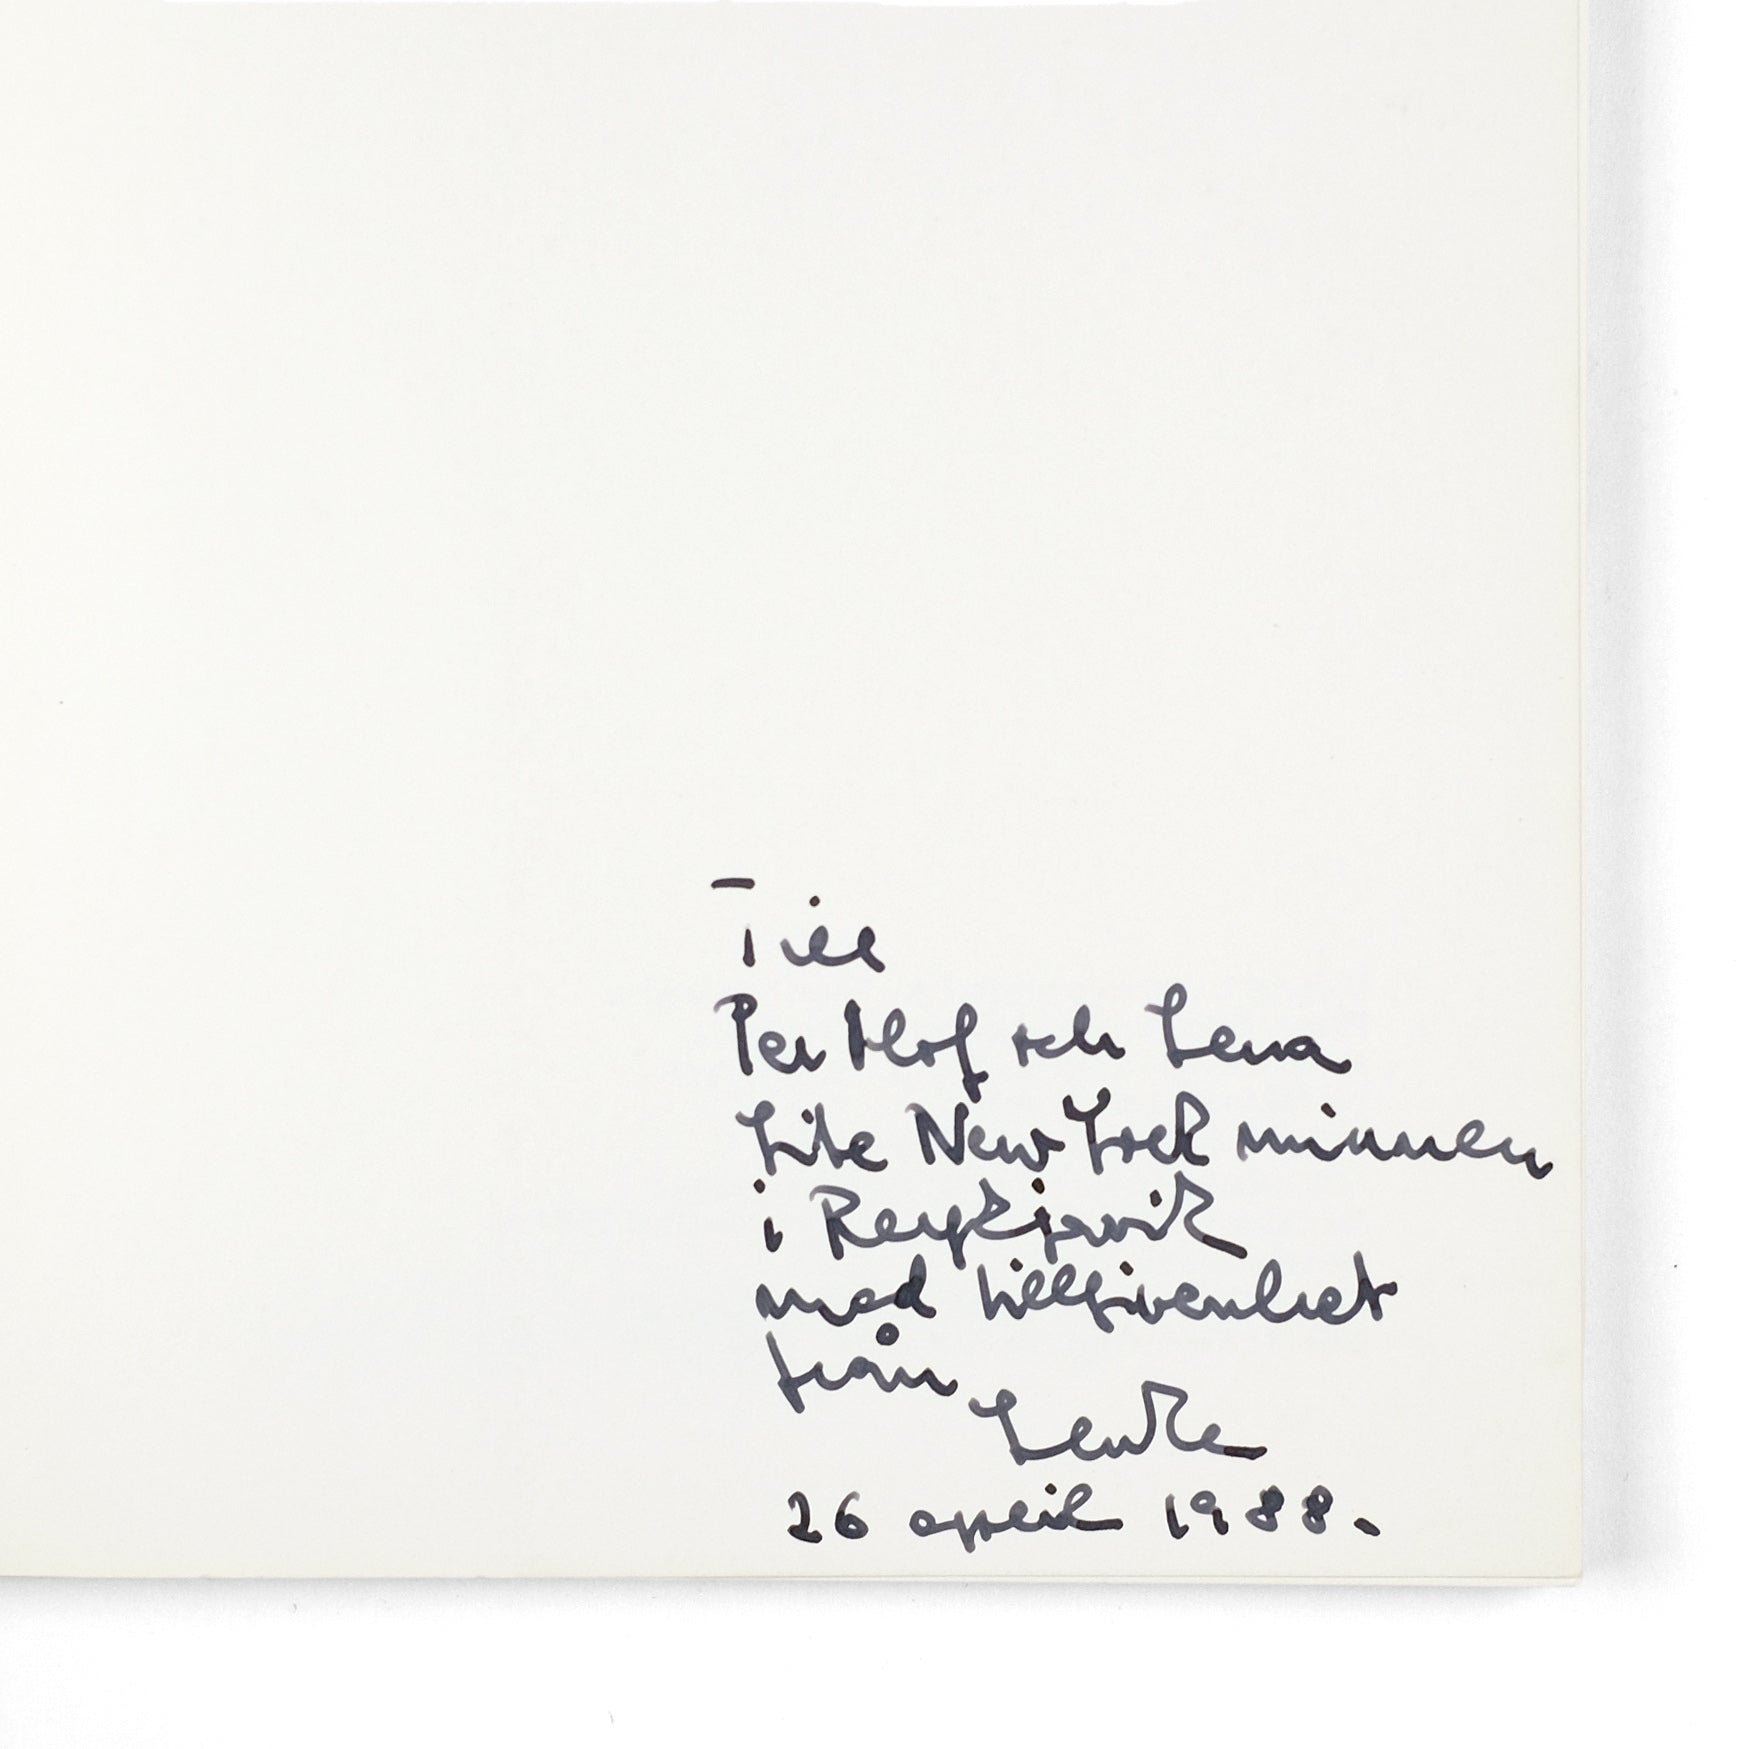 Till
Per Olof och Lena
Lite New York minnen
i Reykjavik
med tillgivenhet
från
26 april 1988.